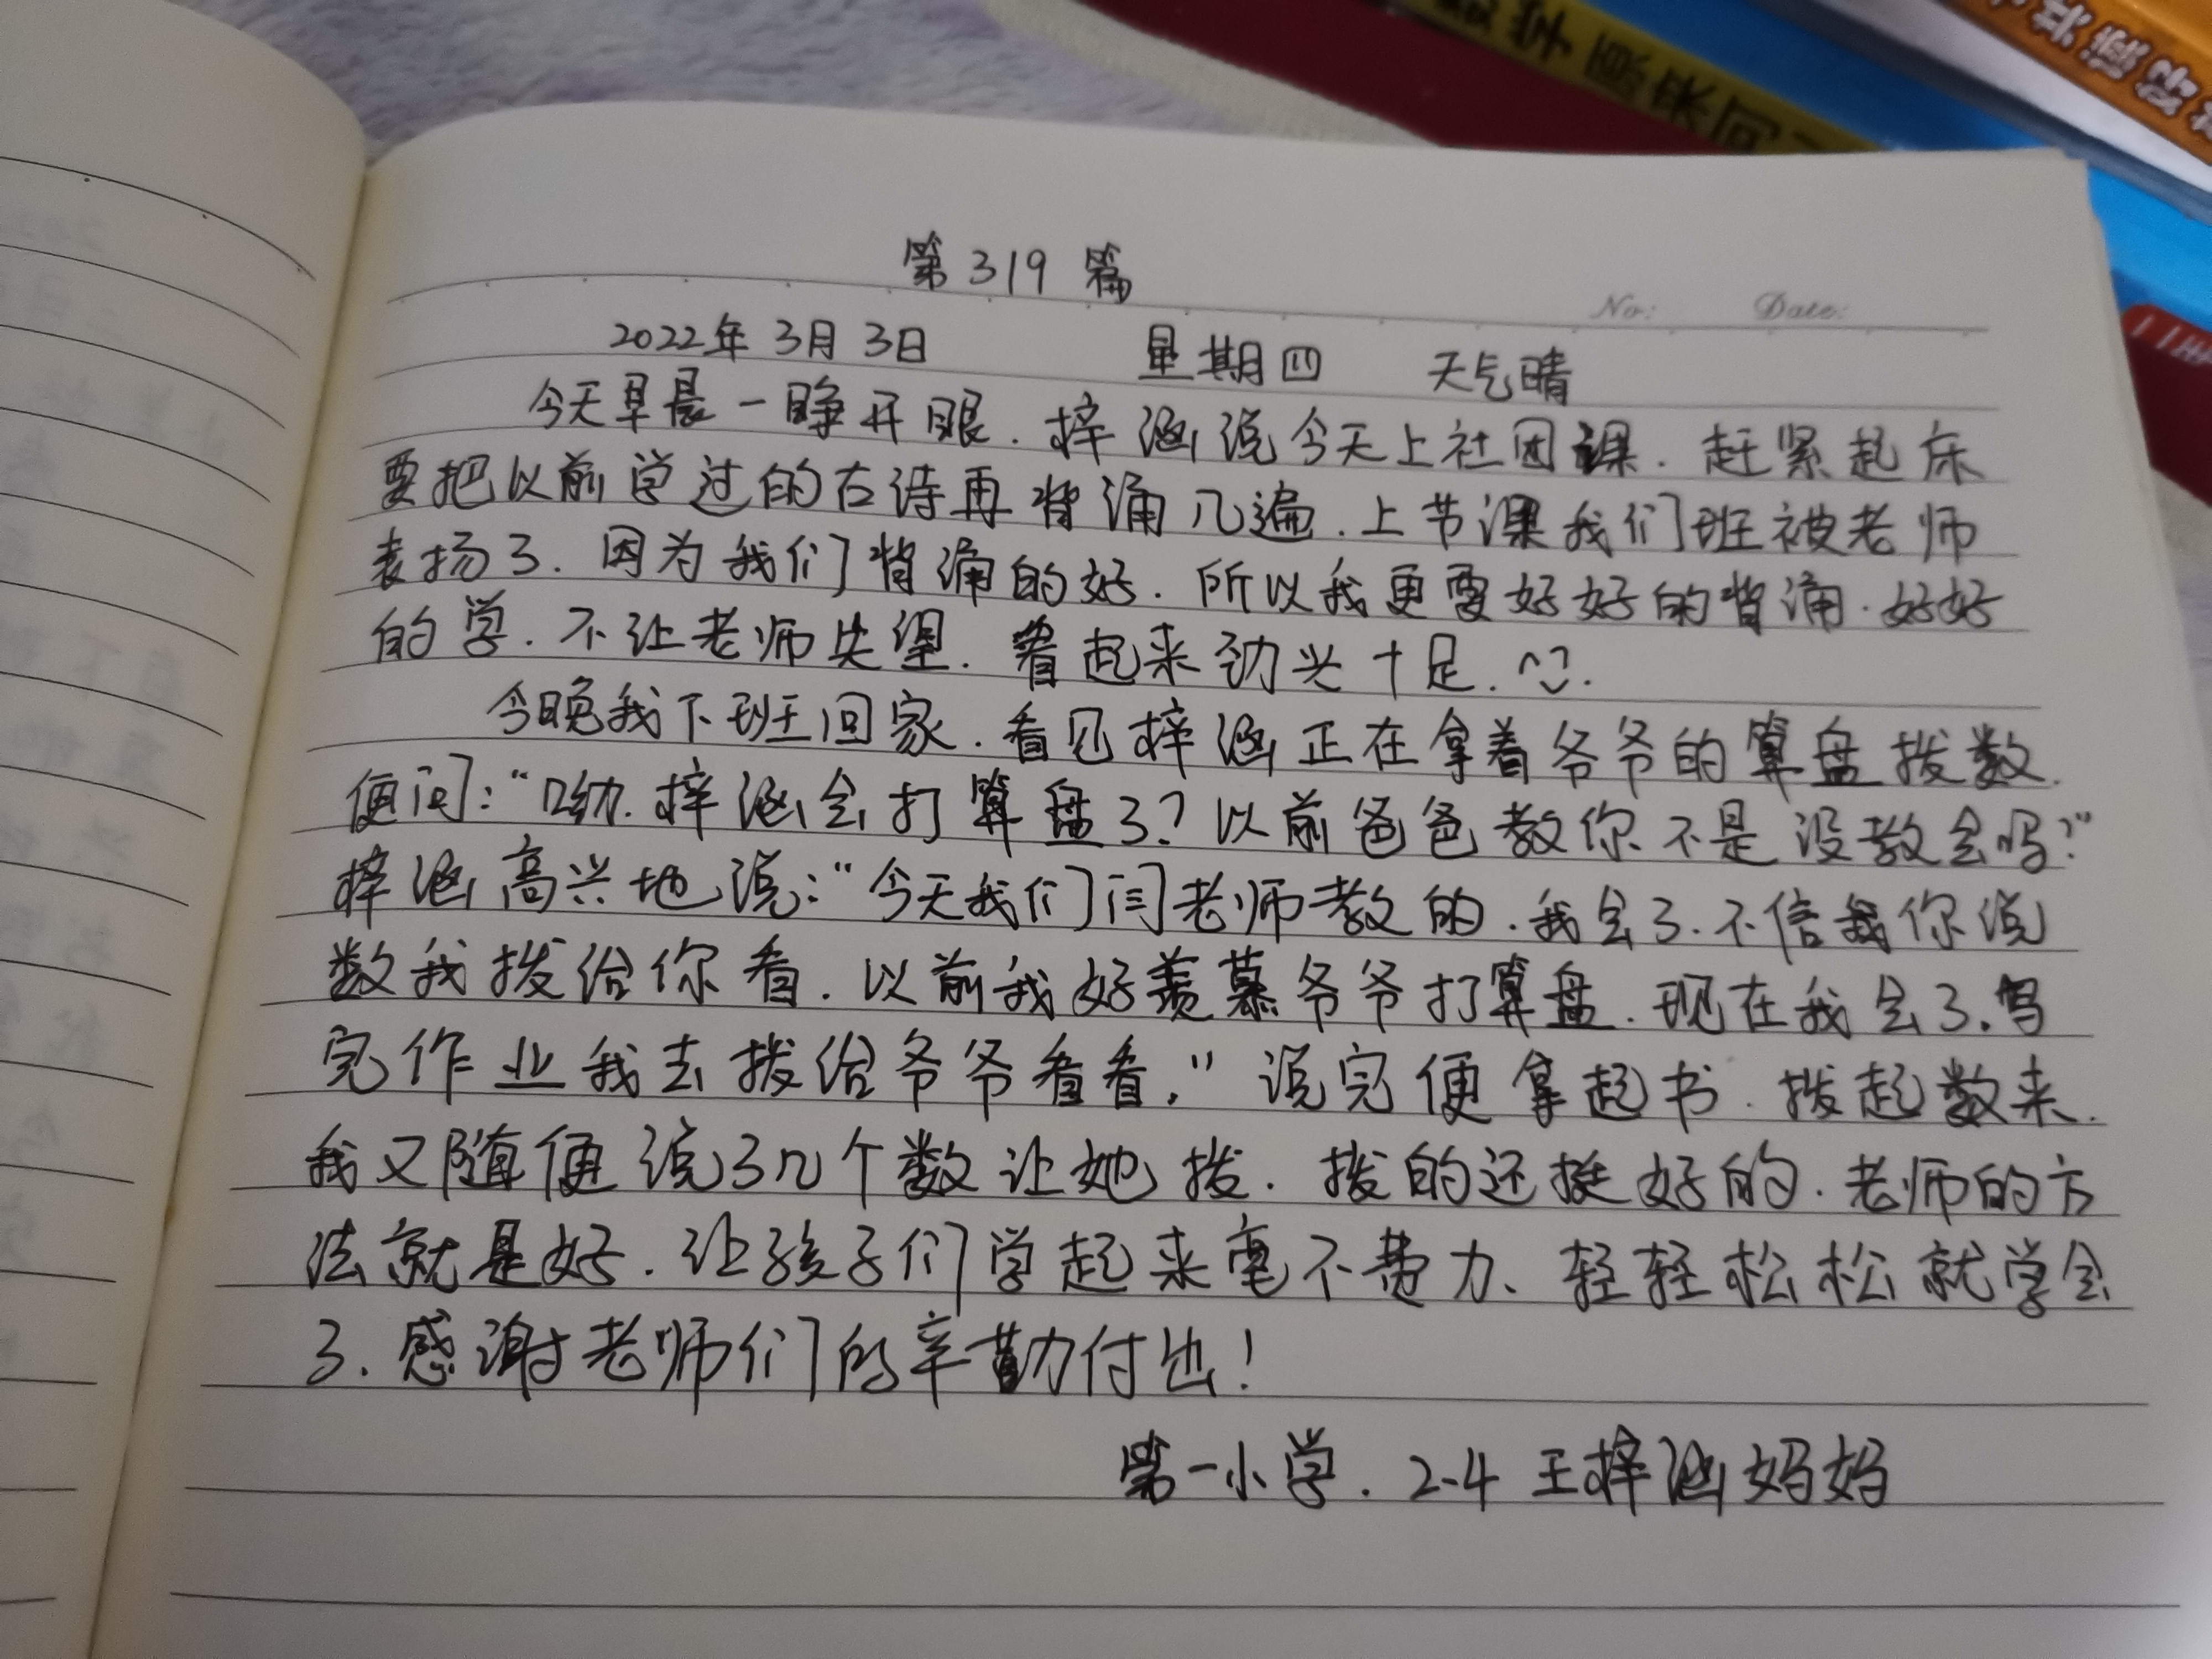 第319篇
No: Date:
2022年3月3日 星期四 天气晴
今天早晨一睁开眼.梓涵说今天上社团课.赶紧起床
要把以前学过的古诗再背诵几遍.上节课我们班被老师
表扬了.因为我们背诵的好.所以我更要好好的背诵.好好
的学.不让老师失望.看起来劲头十足.
今晚我下班回家.看见梓涵正在拿着爷爷的算盘拨数.
便问:“呦.梓涵会打算盘了?以前爸爸教你不是没教会吗?”
梓涵高兴地说:“今天我们闫老师教的.我会了.不信我你说
数我拨给你看.以前我好羡慕爷爷打算盘.现在我会了.写
完作业我去拨给爷爷看看.”说完便拿起书.拨起数来.
我又随便说了几个数让她拨.拨的还挺好的.老师的方
法就是好.让孩子们学起来毫不费力、轻轻松松就学会
了.感谢老师们的辛勤付出!
第一小学.2-4 王梓涵妈妈